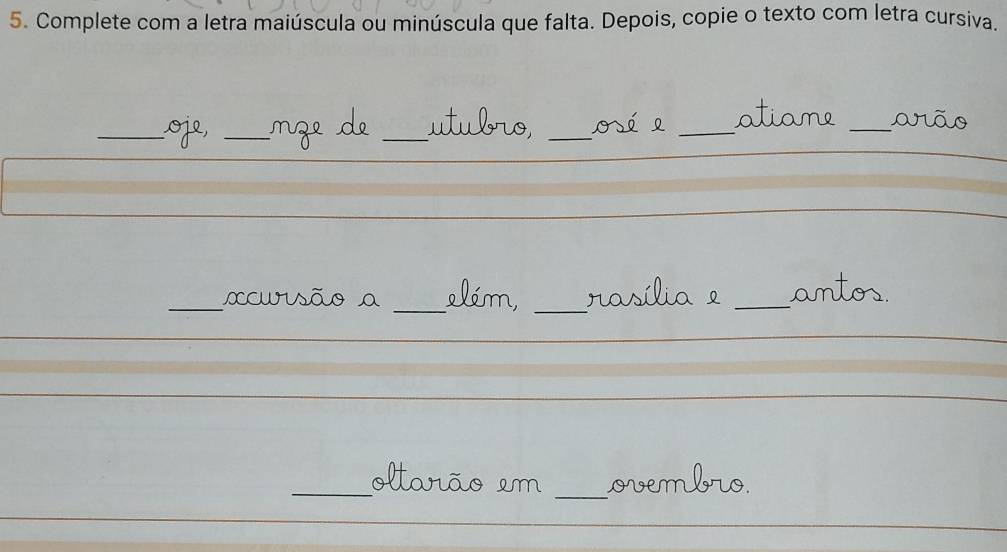 5. Complete com a letra maiúscula ou minúscula que falta. Depois, copie o texto com letra cursiva.
____oje, ____nze de ____utubro, ____osé e ____atiane ____arão
____xcursão a ____elém, ____rasília e ____antos.
____oltarão em ____ovembro.